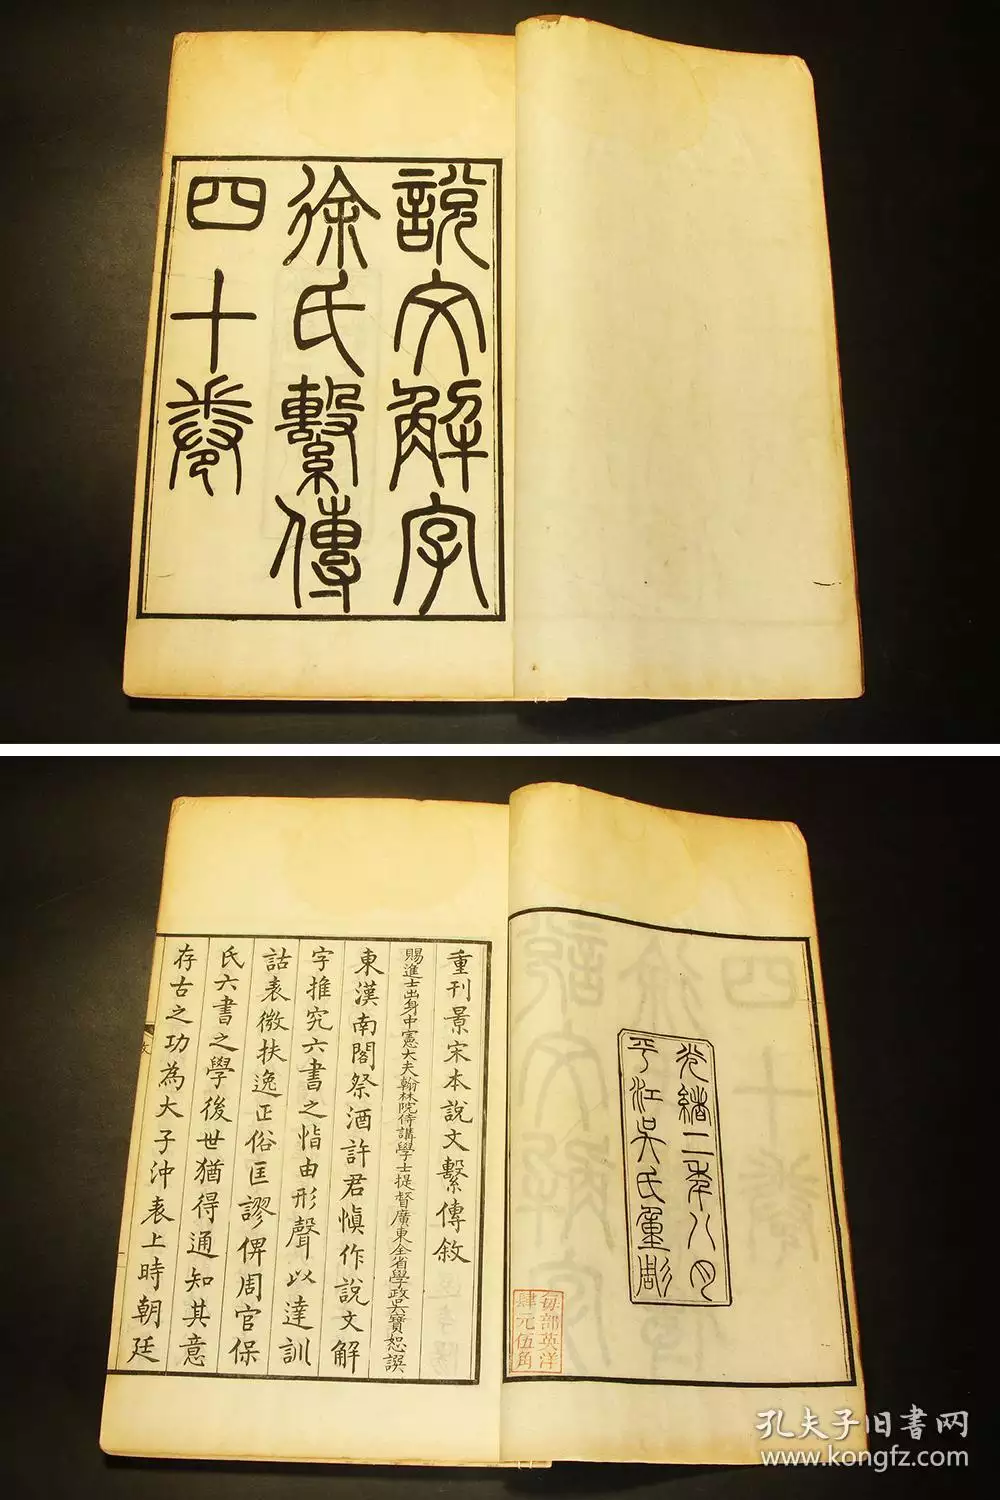 說文解字
徐氏繫傳
四十卷
光緒二年八月
平江吳氏重彫
每部英洋
肆元伍角
重刊景宋本說文繫傳敘
賜進士出身中憲大夫翰林院侍講學士提督廣東全省學政吳寶恕譔
東漢南閣祭酒許君愼作說文解
字推究六書之恉由形聲以達訓
詁表微扶逸正俗匡謬俾周官保
氏六書之學後世猶得通知其意
存古之功為大子沖表上時朝廷
孔夫子旧書网
www.kongfz.com